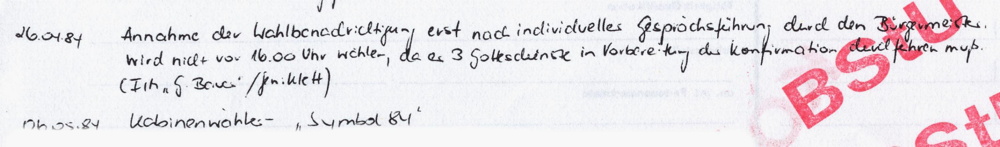 26.04.84 Annahme der Wahlbenachrichtigung erst nach individueller Gesprächsführung durch den Bürgermeister.
wird nicht vor 16.00 Uhr wählen, da er 3 Gottesdienste in Vorbereitung der Konfirmation durchführen muß.
BStU
04.05.84 Kabinenwähler - "Symbol 84"
BStU